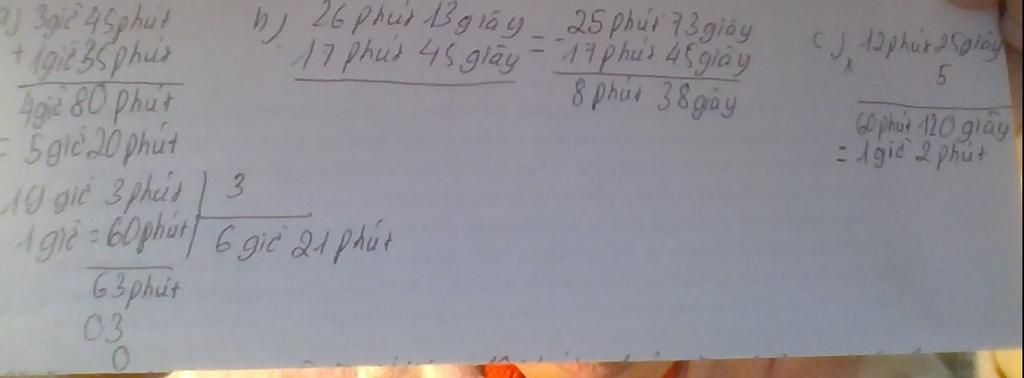 a) 3giờ 45phút
+ 1giờ 35phút
4giờ 80phút
= 5giờ 20phút
b) 26phút 13giây
17phút 45giây
= - 25phút 73giây
17phút 45giây
8phút 38giây
c) 12phút 25giây
x 5
60phút 120giây
= 1giờ 2phút
19 giờ 3phút 3
1giờ = 60phút 6giờ 21phút
63phút
03
0